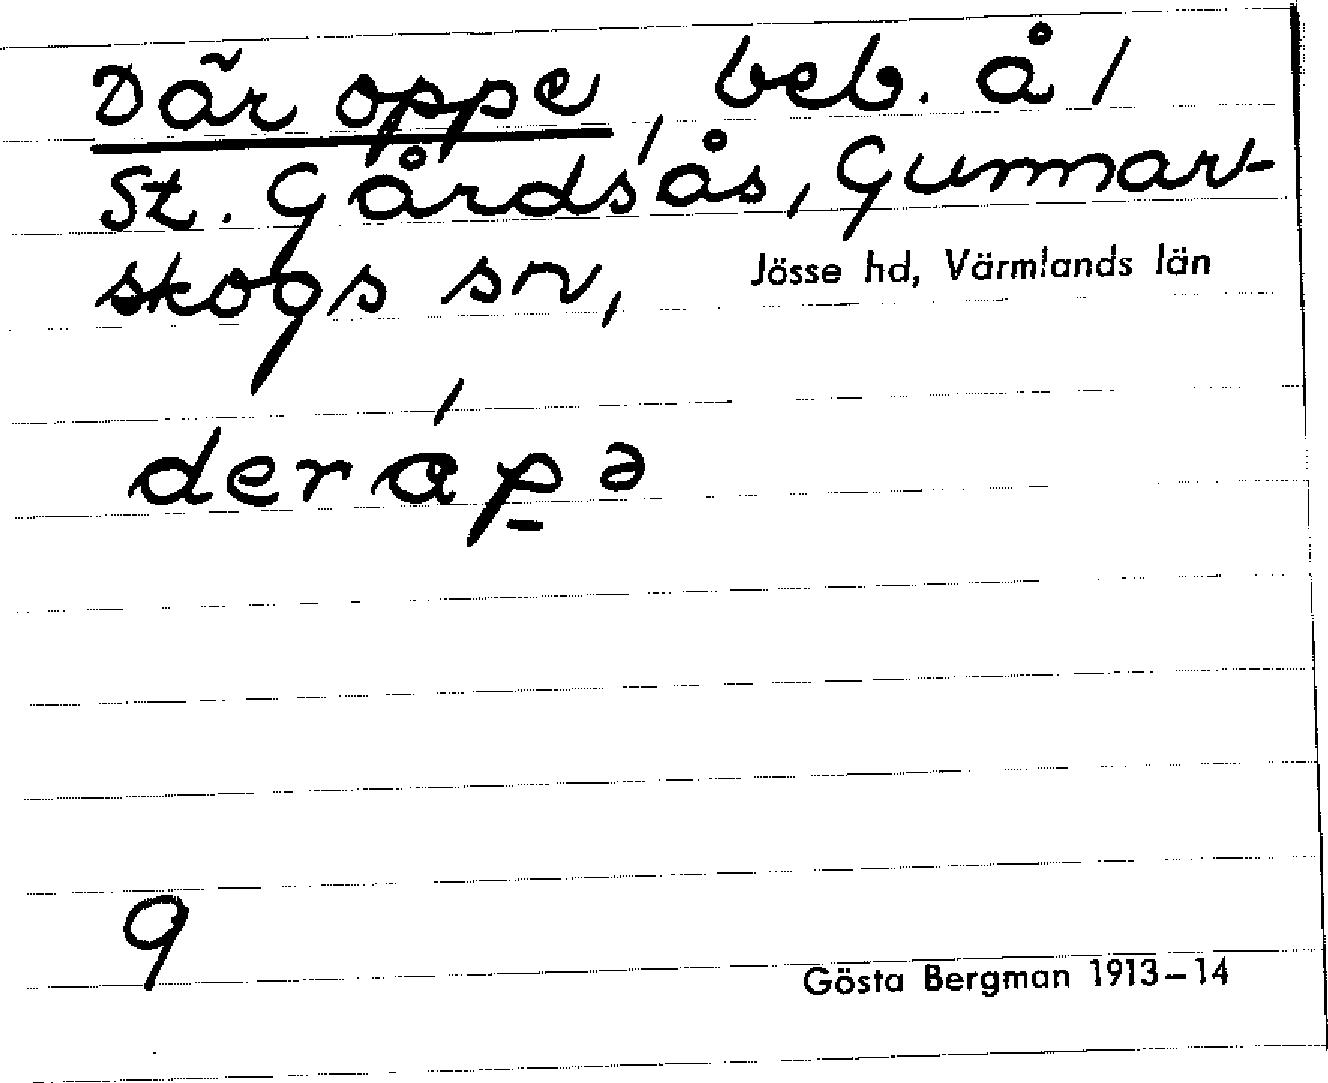 Där oppe, beb. å /
St. Gårdsås, Gunnar-
skogs sn,
Jösse hd, Värmlands län
deráp̠ə
9
Gösta Bergman 1913–14